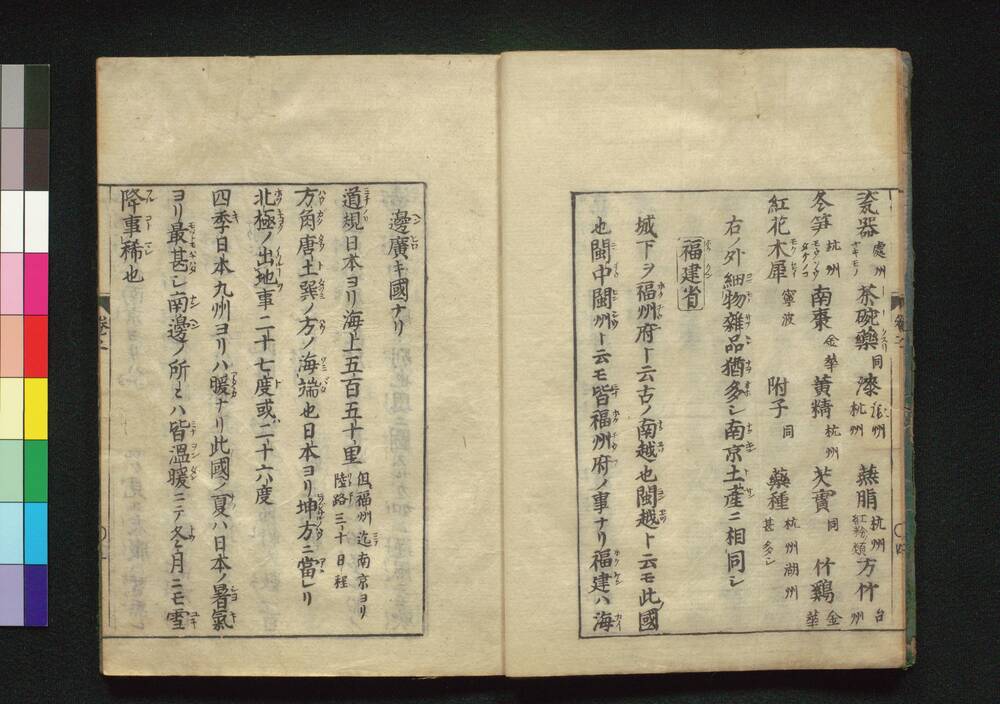 瓷器 處州 茶碗藥 同 漆 杭州 燕脂 杭州 紅粉類 方竹 台州
冬笋 杭州 南棗 金華 黄精 杭州 芡實 同 竹鷄 金華
紅花 木犀 寧波 附子 同 藥種 杭州湖州甚多シ
右ノ外細物雜品猶多シ南京土產ニ相同シ
福建省
城下ヲ福州府ト云古ノ南越也閩越ト云モ此國
也閩中閩州ト云モ皆福州府ノ事ナリ福建ハ海
邊廣キ國ナリ
道規日本ヨリ海上五百五十里 但福州迄南京ヨリ陸路三十日程
方角唐土巽ノ方ノ海端也日本ヨリ坤方ニ當レリ
北極ノ出地事二十七度或二十六度
四季日本九州ヨリハ暖ナリ此國ノ夏ハ日本ノ暑氣
ヨリ最甚シ南邊ノ所々ハ皆溫暖ニテ冬月ニモ雪
降事稀也